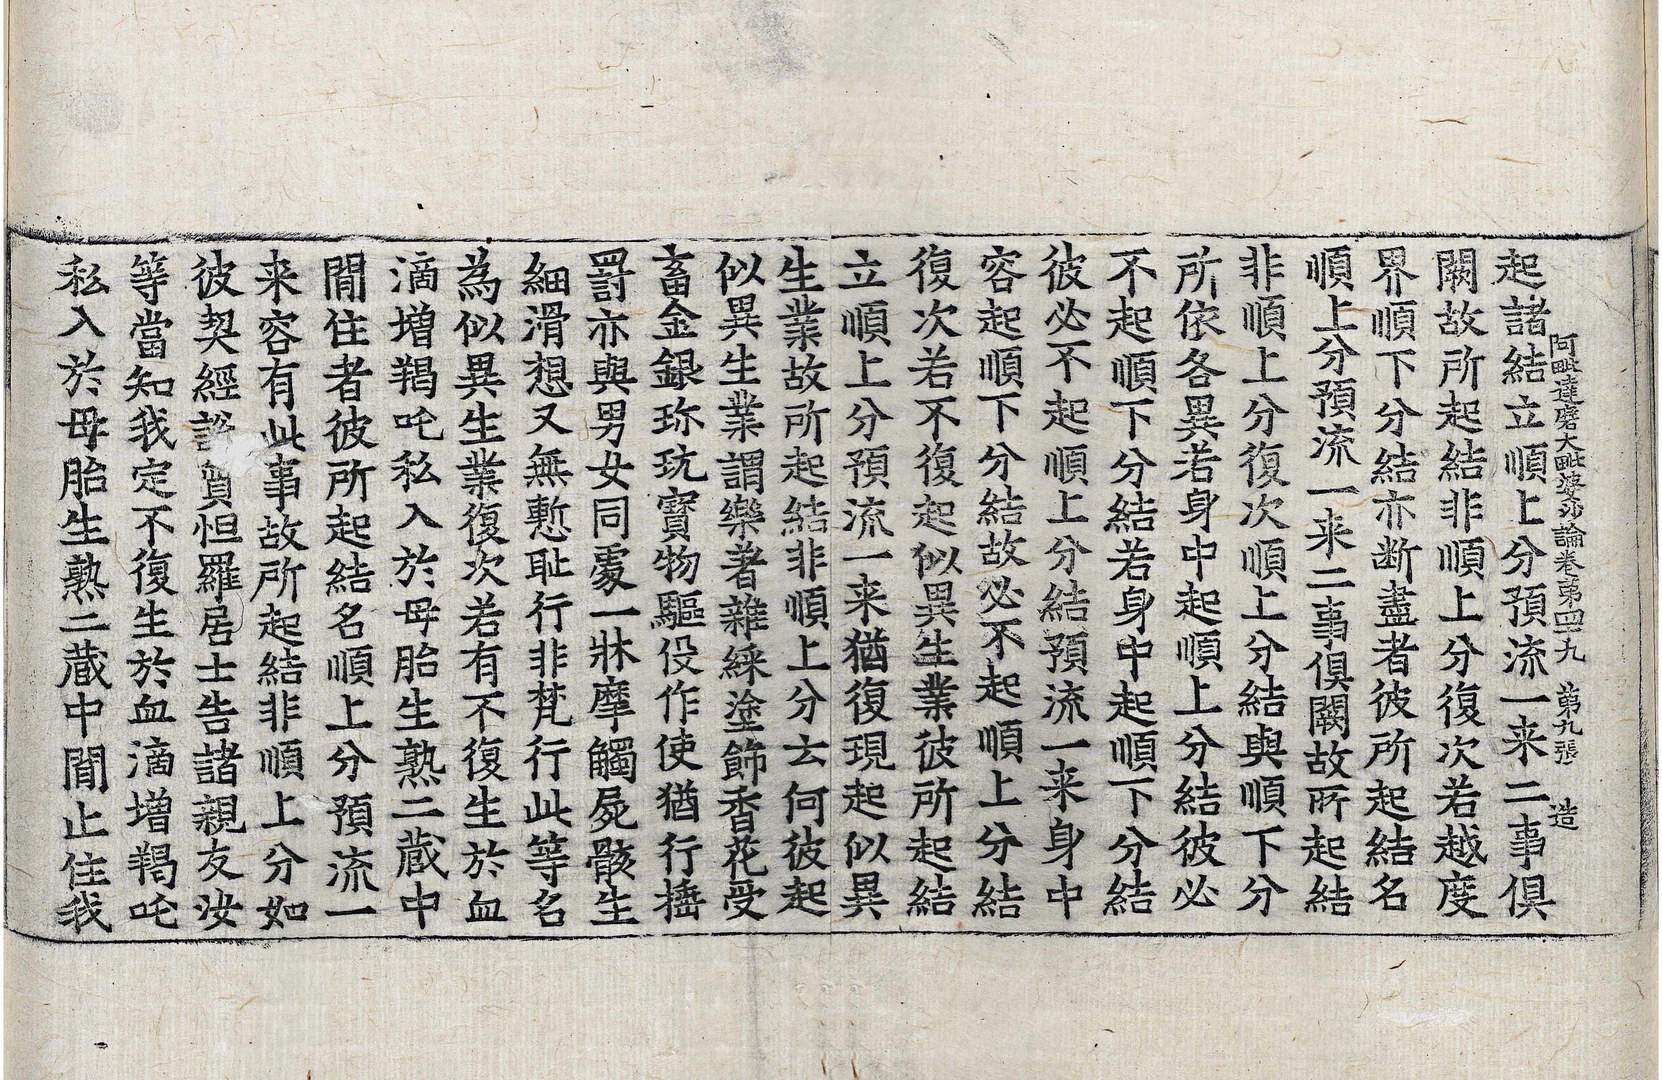 阿毗達磨大毗婆沙論卷第四十九　第九張　造
起諸結立順上分預流一来二事俱
闕故所起結非順上分復次若越度
界順下分結亦断盡者彼所起結名
順上分預流一来二事俱闕故所起結
非順上分復次順上分結與順下分
所依各異若身中起順上分結彼必
不起順下分結若身中起順下分結
彼必不起順上分結預流一来身中
容起順下分結故必不起順上分結
復次若不復起似異生業彼所起結
立順上分預流一来猶復現起似異
生業故所起結非順上分云何彼起
似異生業謂樂著雜綵塗飾香花受
畜金銀珎玩寶物驅役作使猶行捶
罸亦與男女同處一牀摩觸屍骸生
細滑想又無慙耻行非梵行此等名
為似異生業復次若有不復生於血
滴増羯吒私入於母胎生熟二蔵中
閒住者彼所起結名順上分預流一
来容有此事故所起結非順上分如
彼契經說質怛羅居士告諸親友汝
等當知我定不復生於血滴増羯吒
私入於母胎生熟二蔵中閒止住我